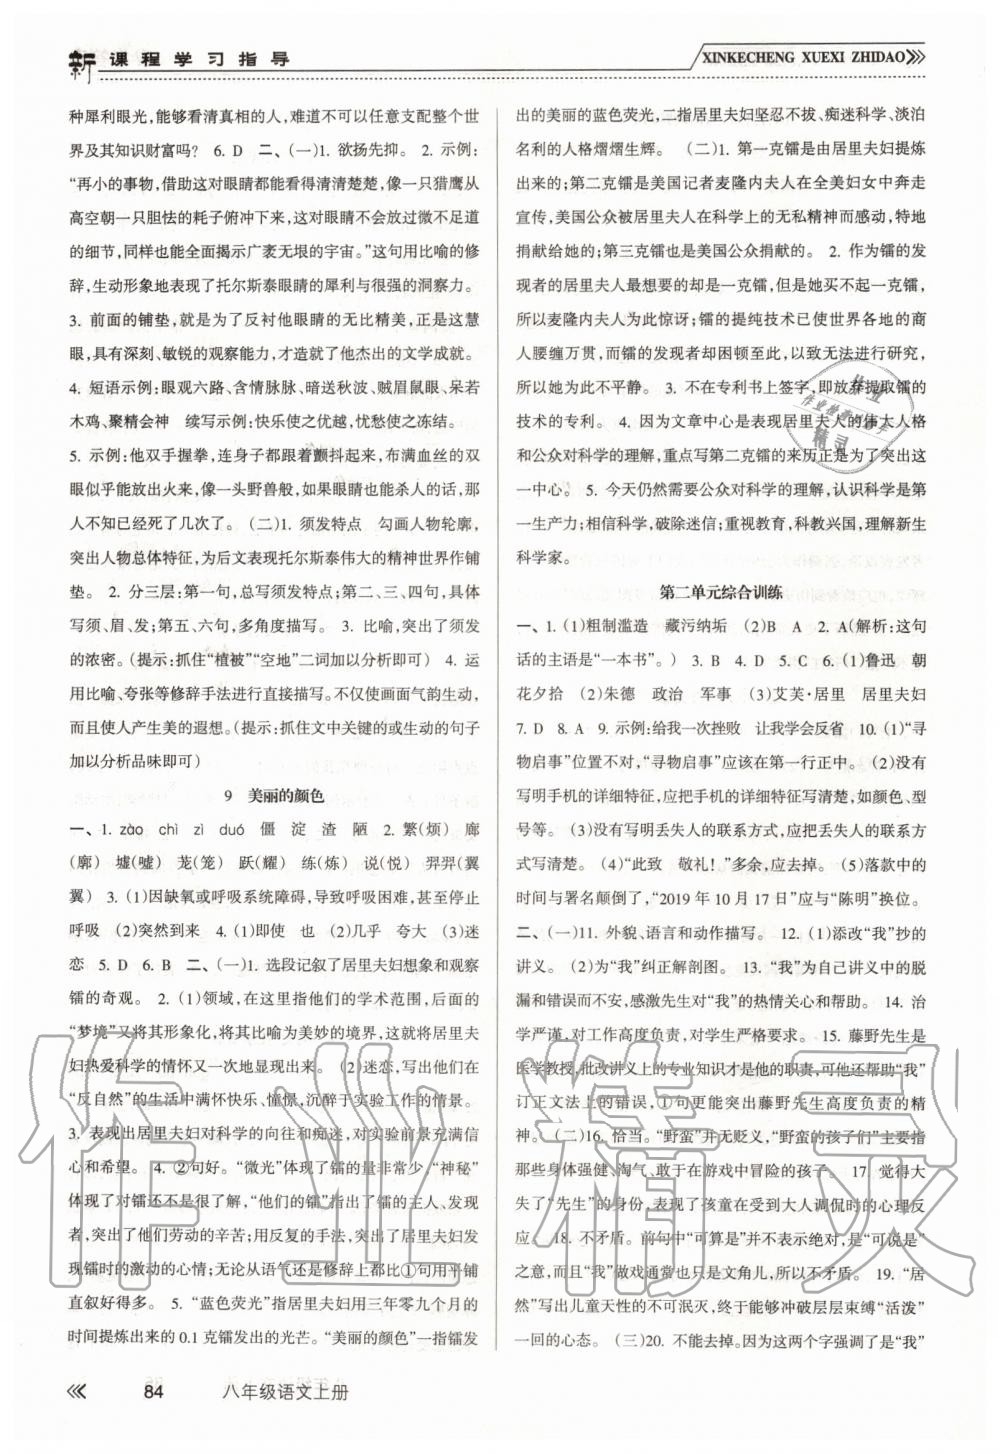 新课程学习指导
XINKECHENG XUEXI ZHIDAO
种犀利眼光,能够看清真相的人,难道不可以任意支配整个世
界及其知识财富吗? 6. D 二、(一)1. 欲扬先抑。 2. 示例:
“再小的事物,借助这对眼睛都能看得清清楚楚,像一只猎鹰从
高空朝一只胆怯的耗子俯冲下来,这对眼睛不会放过微不足道
的细节,同样也能全面揭示广袤无垠的宇宙。”这句用比喻的修
辞,生动形象地表现了托尔斯泰眼睛的犀利与很强的洞察力。
3. 前面的铺垫,就是为了反衬他眼睛的无比精美,正是这慧
眼,具有深刻、敏锐的观察能力,才造就了他杰出的文学成就。
4. 短语示例:眼观六路、含情脉脉、暗送秋波、贼眉鼠眼、呆若
木鸡、聚精会神 续写示例:快乐使之优越,忧愁使之冻结。
5. 示例:他双手握拳,连身子都跟着颤抖起来,布满血丝的双
眼似乎能放出火来,像一头野兽般,如果眼睛也能杀人的话,敌
人不知已经死了几次了。 (二)1. 须发特点 勾画人物轮廓,
突出人物总体特征,为后文表现托尔斯泰伟大的精神世界作铺
垫。 2. 分三层:第一句,总写须发特点;第二、三、四句,具体
写须、眉、发;第五、六句,多角度描写。 3. 比喻,突出了须发
的浓密。(提示:抓住“植被”“空地”二词加以分析即可) 4. 运
用比喻、夸张等修辞手法进行描写。不仅使画面气韵生动,
而且使人产生美的遐想。(提示:抓住文中关键的或生动的句子
加以分析品味即可)
9 美丽的颜色
一、1. zào chì zì duó 僵 淀 渣 陋 2. 繁(烦) 廊
(廓) 墟(嘘) 茏(笼) 跃(耀) 练(炼) 说(悦) 羿羿(翼
翼) 3. (1)因缺氧或呼吸系统障碍,导致呼吸困难,甚至停止
呼吸 (2)突然到来 4. (1)即使 也 (2)几乎 夸大 (3)迷
恋 5. D 6. B 二、(一)1. 选段记叙了居里夫妇想象和观察
镭的奇观。 2. (1)领域,在这里指他们的学术范围,后面的
“梦境”又将其形象化,将其比喻为美妙的境界,这就将居里夫
妇热爱科学的情怀又一次地显现出来。 (2)迷恋,写出他们在
“反自然”的生活中满怀快乐、憧憬,沉醉于实验工作的情景。
3. 表现出居里夫妇对科学的向往和痴迷,对实验前景充满信
心和希望。 4. ②句好。“微光”体现了镭的量非常少,“神秘”
体现了对镭还不是很了解,“他们的镭”体现了镭的主人、发现
者,突出了他们劳动的辛苦;运用反复的手法,突出了他们发现
镭时的激动的心情;无论从语气还是修辞上都比①句用平铺
直叙好得多。 5. “蓝色荧光”指居里夫妇用三年零九个月的
时间提炼出来的0.1克镭发出的光芒。“美丽的颜色”一指镭发
出的美丽的蓝色荧光,二指居里夫妇坚忍不拔、痴迷科学、淡泊
名利的人格熠熠生辉。 (二)1. 第一克镭是由居里夫妇提炼
出来的;第二克镭是美国记者麦隆内夫人在全美妇女中奔走
宣传,美国公众被居里夫人在科学上的无私精神而感动,特地
捐献给她的;第三克镭也是美国公众捐献的。 2. 作为镭的发
现者的居里夫人最想要的却是一克镭,但是她买不起一克镭,
所以麦隆内夫人为此惊讶;镭的提纯技术已使世界各地的商
人腰缠万贯,而镭的发现者却困顿至此,以致无法进行研究,
所以她为此不平静。 3. 不在专利书上签字,即放弃提取镭的
技术的专利。 4. 因为文章中心是表现居里夫人的伟大人格
和公众对科学的理解,重点写第二克镭的来历正是为了突出这
一中心。 5. 今天仍然需要公众对科学的理解,认识科学是第
一生产力;相信科学,破除迷信;重视教育,科教兴国,理解新生
科学家。
第二单元综合训练
一、1. (1)粗制滥造 藏污纳垢 (2)B A 2. A(解析:这句
话的主语是“一本书”。) 3. B 4. D 5. C 6. (1)鲁迅 朝
花夕拾 (2)朱德 政治 军事 (3)艾芙·居里 居里夫妇
7. D 8. A 9. 示例:给我一次挫败 让我学会反省 10. (1)“寻
物启事”位置不对,“寻物启事”应该在第一行正中。 (2)没有
写明手机的详细特征,应把手机的详细特征写清楚,如颜色、型
号等。 (3)没有写明丢失人的联系方式,应把丢失人的联系方
式写清楚。 (4)“此致 敬礼!”多余,应去掉。 (5)落款中的
时间与署名颠倒了,“2019 年 10 月 17 日”应与“陈明”换位。
二、(一)11. 外貌、语言和动作描写。 12. (1)添改“我”抄的
讲义。 (2)为“我”纠正解剖图。 13. “我”为自己讲义中的脱
漏和错误而不安,感激先生对“我”的热情关心和帮助。 14. 治
学严谨,对工作高度负责,对学生严格要求。 15. 藤野先生是
医学教授,批改讲义上的专业知识才是他的职责,可他还帮助“我”
订正文法上的错误,①句更能突出藤野先生高度负责的精
神。 (二)16. 恰当。“野蛮”并无贬义,“野蛮的孩子们”主要指
那些身体强健、淘气、敢于在游戏中冒险的孩子。 17. 觉得大
失了“先生”的身份,表现了孩童在受到大人调侃时的心理反
应。 18. 不矛盾。前句中“可算是”并不表示绝对,是“可说是”
之意,而且“我”做戏通常也只是文角儿,所以不矛盾。 19. “居
然”写出儿童天性的不可泯灭,终于能够冲破层层束缚“活泼”
一回的心态。 (三)20. 不能去掉。因为这两个字强调了是“我”
84 八年级语文上册
作业精灵